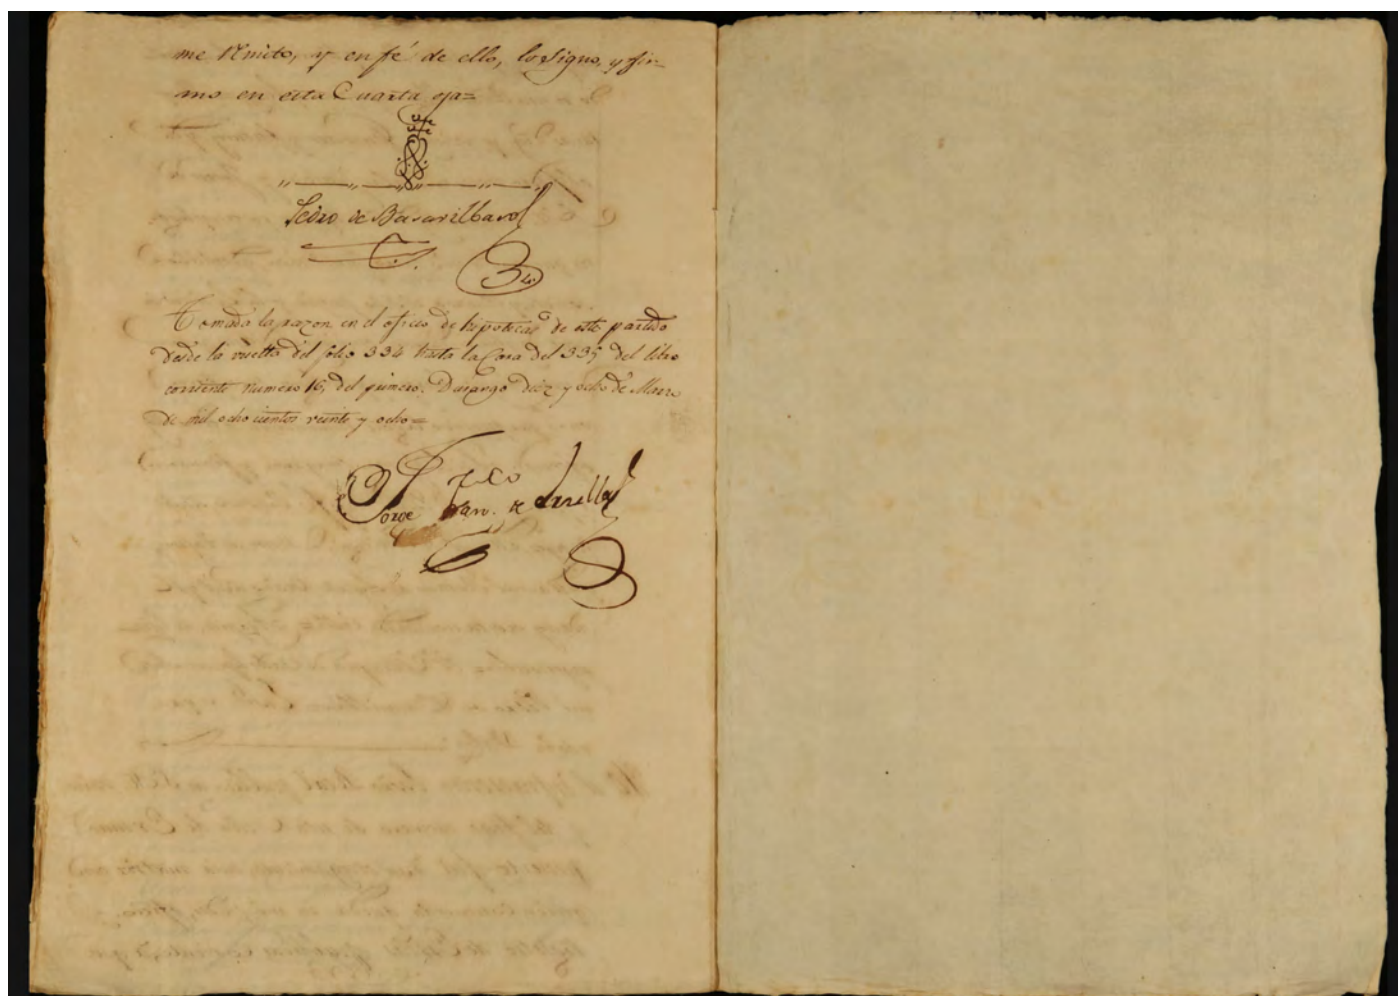 me remito, y en fé de ello, lo signo, y fir-
mo en esta Cuarta oja=
Pedro de Basarilbaso
Tomada la razon en el oficio de hipotecas de este partido
desde la vuelta del folio 334 hasta la Cara del 335 del libro
corriente numero 16, del primero. Durango diez y ocho de Marzo
de mil ocho cientos veinte y ocho=
Jorge de